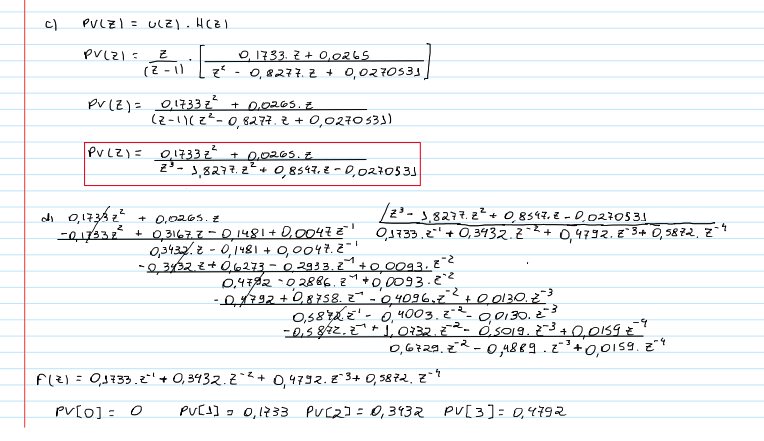 c) PV(z) = U(z) . H(z)
PV(z) = z / (z-1) . [ 0,1733.z + 0,0265 / z² - 0,8277.z + 0,0270531 ]
PV(z) = 0,1733z² + 0,0265.z / (z-1)(z² - 0,8277.z + 0,0270531)
PV(z) = 0,1733z² + 0,0265.z / z³ - 1,8277.z² + 0,8547.z - 0,0270531
d) 0,1733z² + 0,0265.z /z³ - 1,8277.z² + 0,8547.z - 0,0270531
-0,1733z² + 0,3167.z - 0,1481 + 0,0047z⁻¹ 0,1733.z⁻¹ + 0,3432.z⁻² + 0,4792.z⁻³ + 0,5872.z⁻⁴
0,3432.z - 0,1481 + 0,0047.z⁻¹
-0,3432.z + 0,6273 - 0,2933.z⁻¹ + 0,0093.z⁻²
0,4792 - 0,2886.z⁻¹ + 0,0093.z⁻²
-0,4792 + 0,8758.z⁻¹ - 0,4096.z⁻² + 0,0130.z⁻³
0,5872z⁻¹ - 0,4003.z⁻² - 0,0130.z⁻³
-0,5872.z⁻¹ + 1,0732.z⁻² - 0,5019.z⁻³ + 0,0159z⁻⁴
0,6729.z⁻² - 0,4889.z⁻³ + 0,0159.z⁻⁴
F(z) = 0,1733z⁻¹ + 0,3432.z⁻² + 0,4792.z⁻³ + 0,5872.z⁻⁴
PV[0] = 0 PV[1] = 0,1733 PV[2] = 0,3432 PV[3] = 0,4792